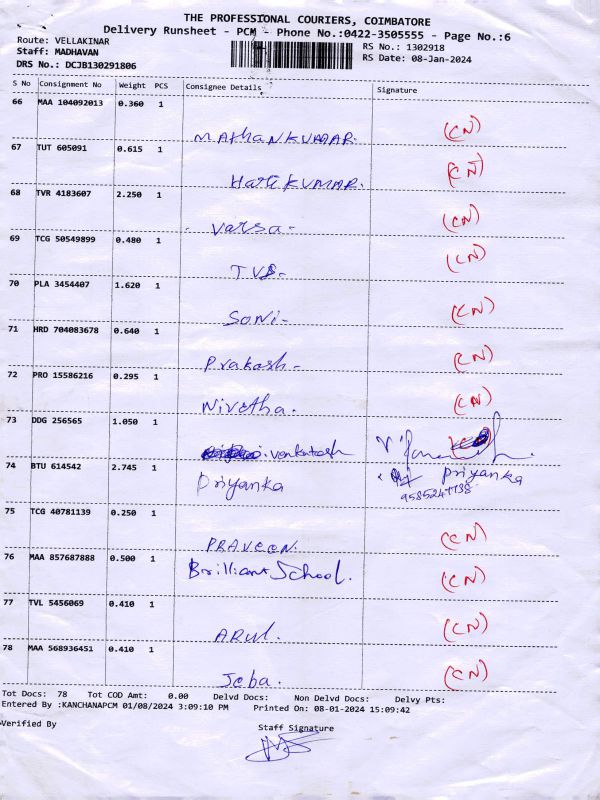 THE PROFESSIONAL COURIERS, COIMBATORE
Delivery Runsheet - PCM - Phone No.:0422-3505555 - Page No.:6
Route: VELLAKINAR RS No.: 1302918
Staff: MADHAVAN RS Date: 08-Jan-2024
DRS No.: DCJB130291806
S No Consignment No Weight PCS Consignee Details Signature
66 MAA 104092013 0.360 1
MAthanKUMAR. (CN)
67 TUT 605091 0.615 1
HariKUMAR. (CN)
68 TVR 4183607 2.250 1
Varsa- (CN)
69 TCG 50549899 0.480 1
TVS- (CN)
70 PLA 3454407 1.620 1
Soni- (CN)
71 HRD 704083678 0.640 1
Prakash- (CN)
72 PRO 15586216 0.295 1
Nivetha. (CN)
73 DDG 256565 1.050 1
venkatash
74 BTU 614542 2.745 1
Priyanka priyanka
75 TCG 40781139 0.250 1
PRAVeeN. (CN)
76 MAA 857687888 0.500 1
Brilliant School. (CN)
77 TVL 5456069 0.410 1
ARUl. (CN)
78 MAA 568936451 0.410 1
Jeba. (CN)
Tot Docs: 78 Tot COD Amt: 0.00 Delvd Docs: Non Delvd Docs: Delvy Pts:
Entered By :KANCHANAPCM 01/08/2024 3:09:10 PM Printed On: 08-01-2024 15:09:42
Verified By Staff Signature